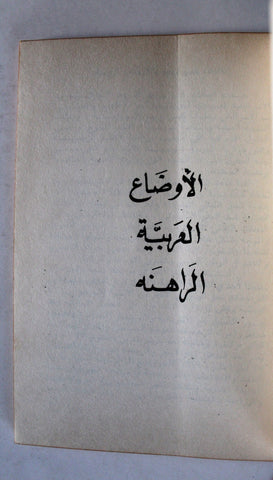 الأوضَاع
العَربيَّة
الرَاهنَه